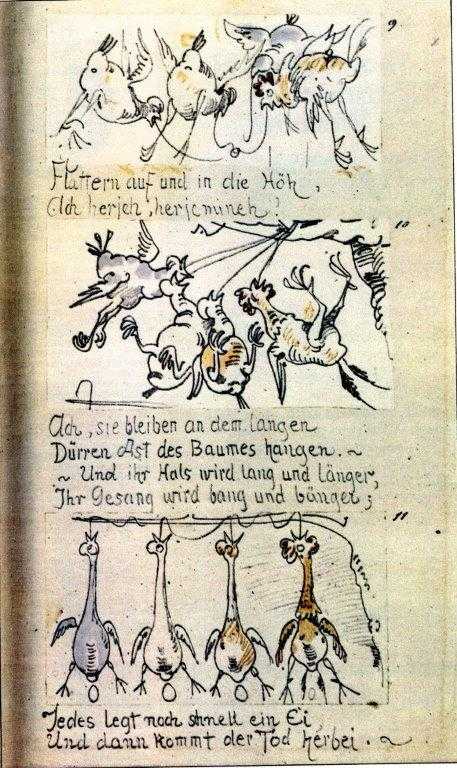 9
Flattern auf und in die Höh,
Ach herjeh, herjemineh!
10
Ach, sie bleiben an dem langen
Dürren Ast des Baumes hangen. ~
~ Und ihr Hals wird lang und länger,
Ihr Gesang wird bang und bänger;
11
Jedes legt noch schnell ein Ei,
Und dann kommt der Tod herbei. ~